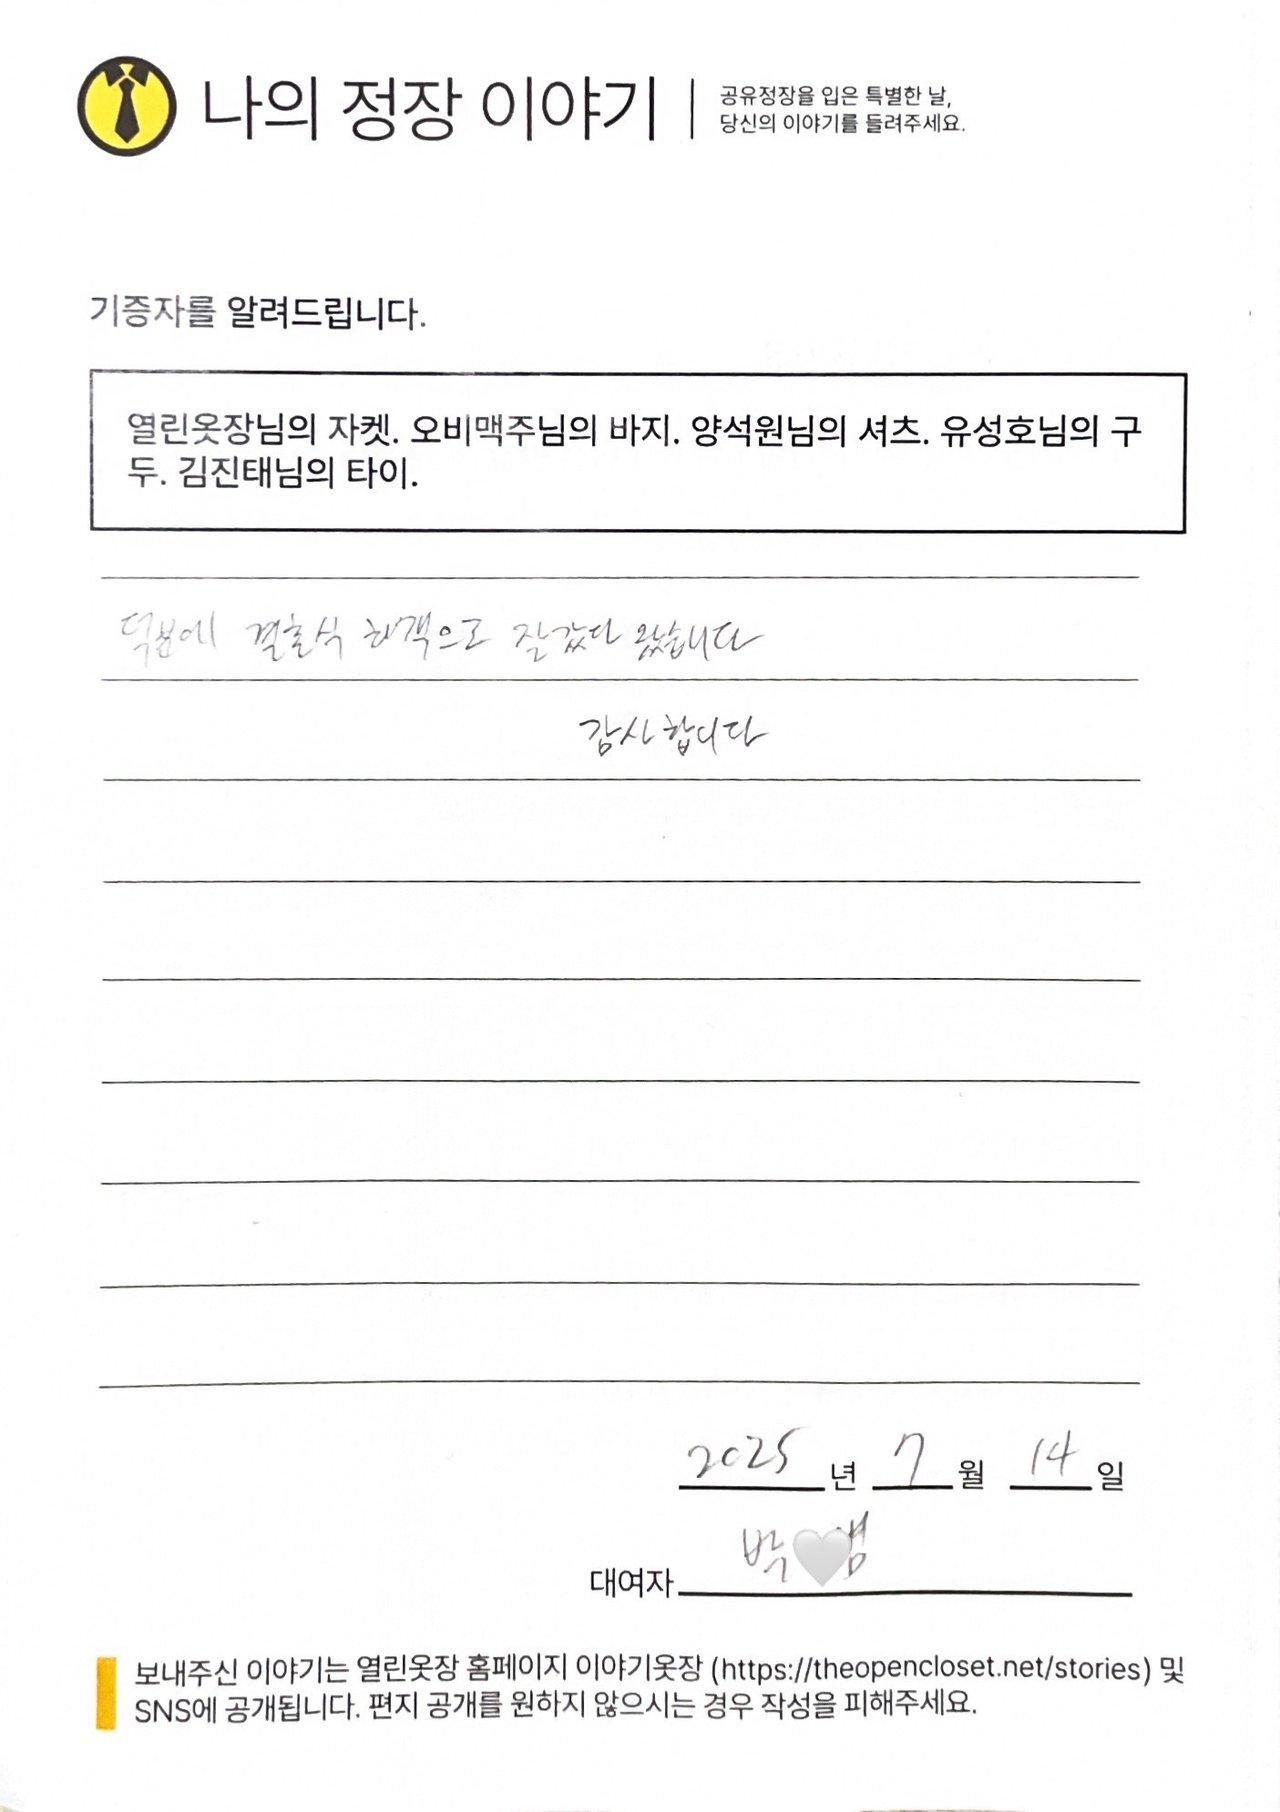 나의 정장 이야기
공유정장을 입은 특별한 날,
당신의 이야기를 들려주세요.
기증자를 알려드립니다.
열린옷장님의 자켓. 오비맥주님의 바지. 양석원님의 셔츠. 유성호님의 구
두. 김진태님의 타이.
덕분에 결혼식 하객으로 잘 갔다 왔습니다
감사합니다
2025 년 7 월 14 일
대여자 박
보내주신 이야기는 열린옷장 홈페이지 이야기옷장 (https://theopencloset.net/stories) 및
SNS에 공개됩니다. 편지 공개를 원하지 않으시는 경우 작성을 피해주세요.